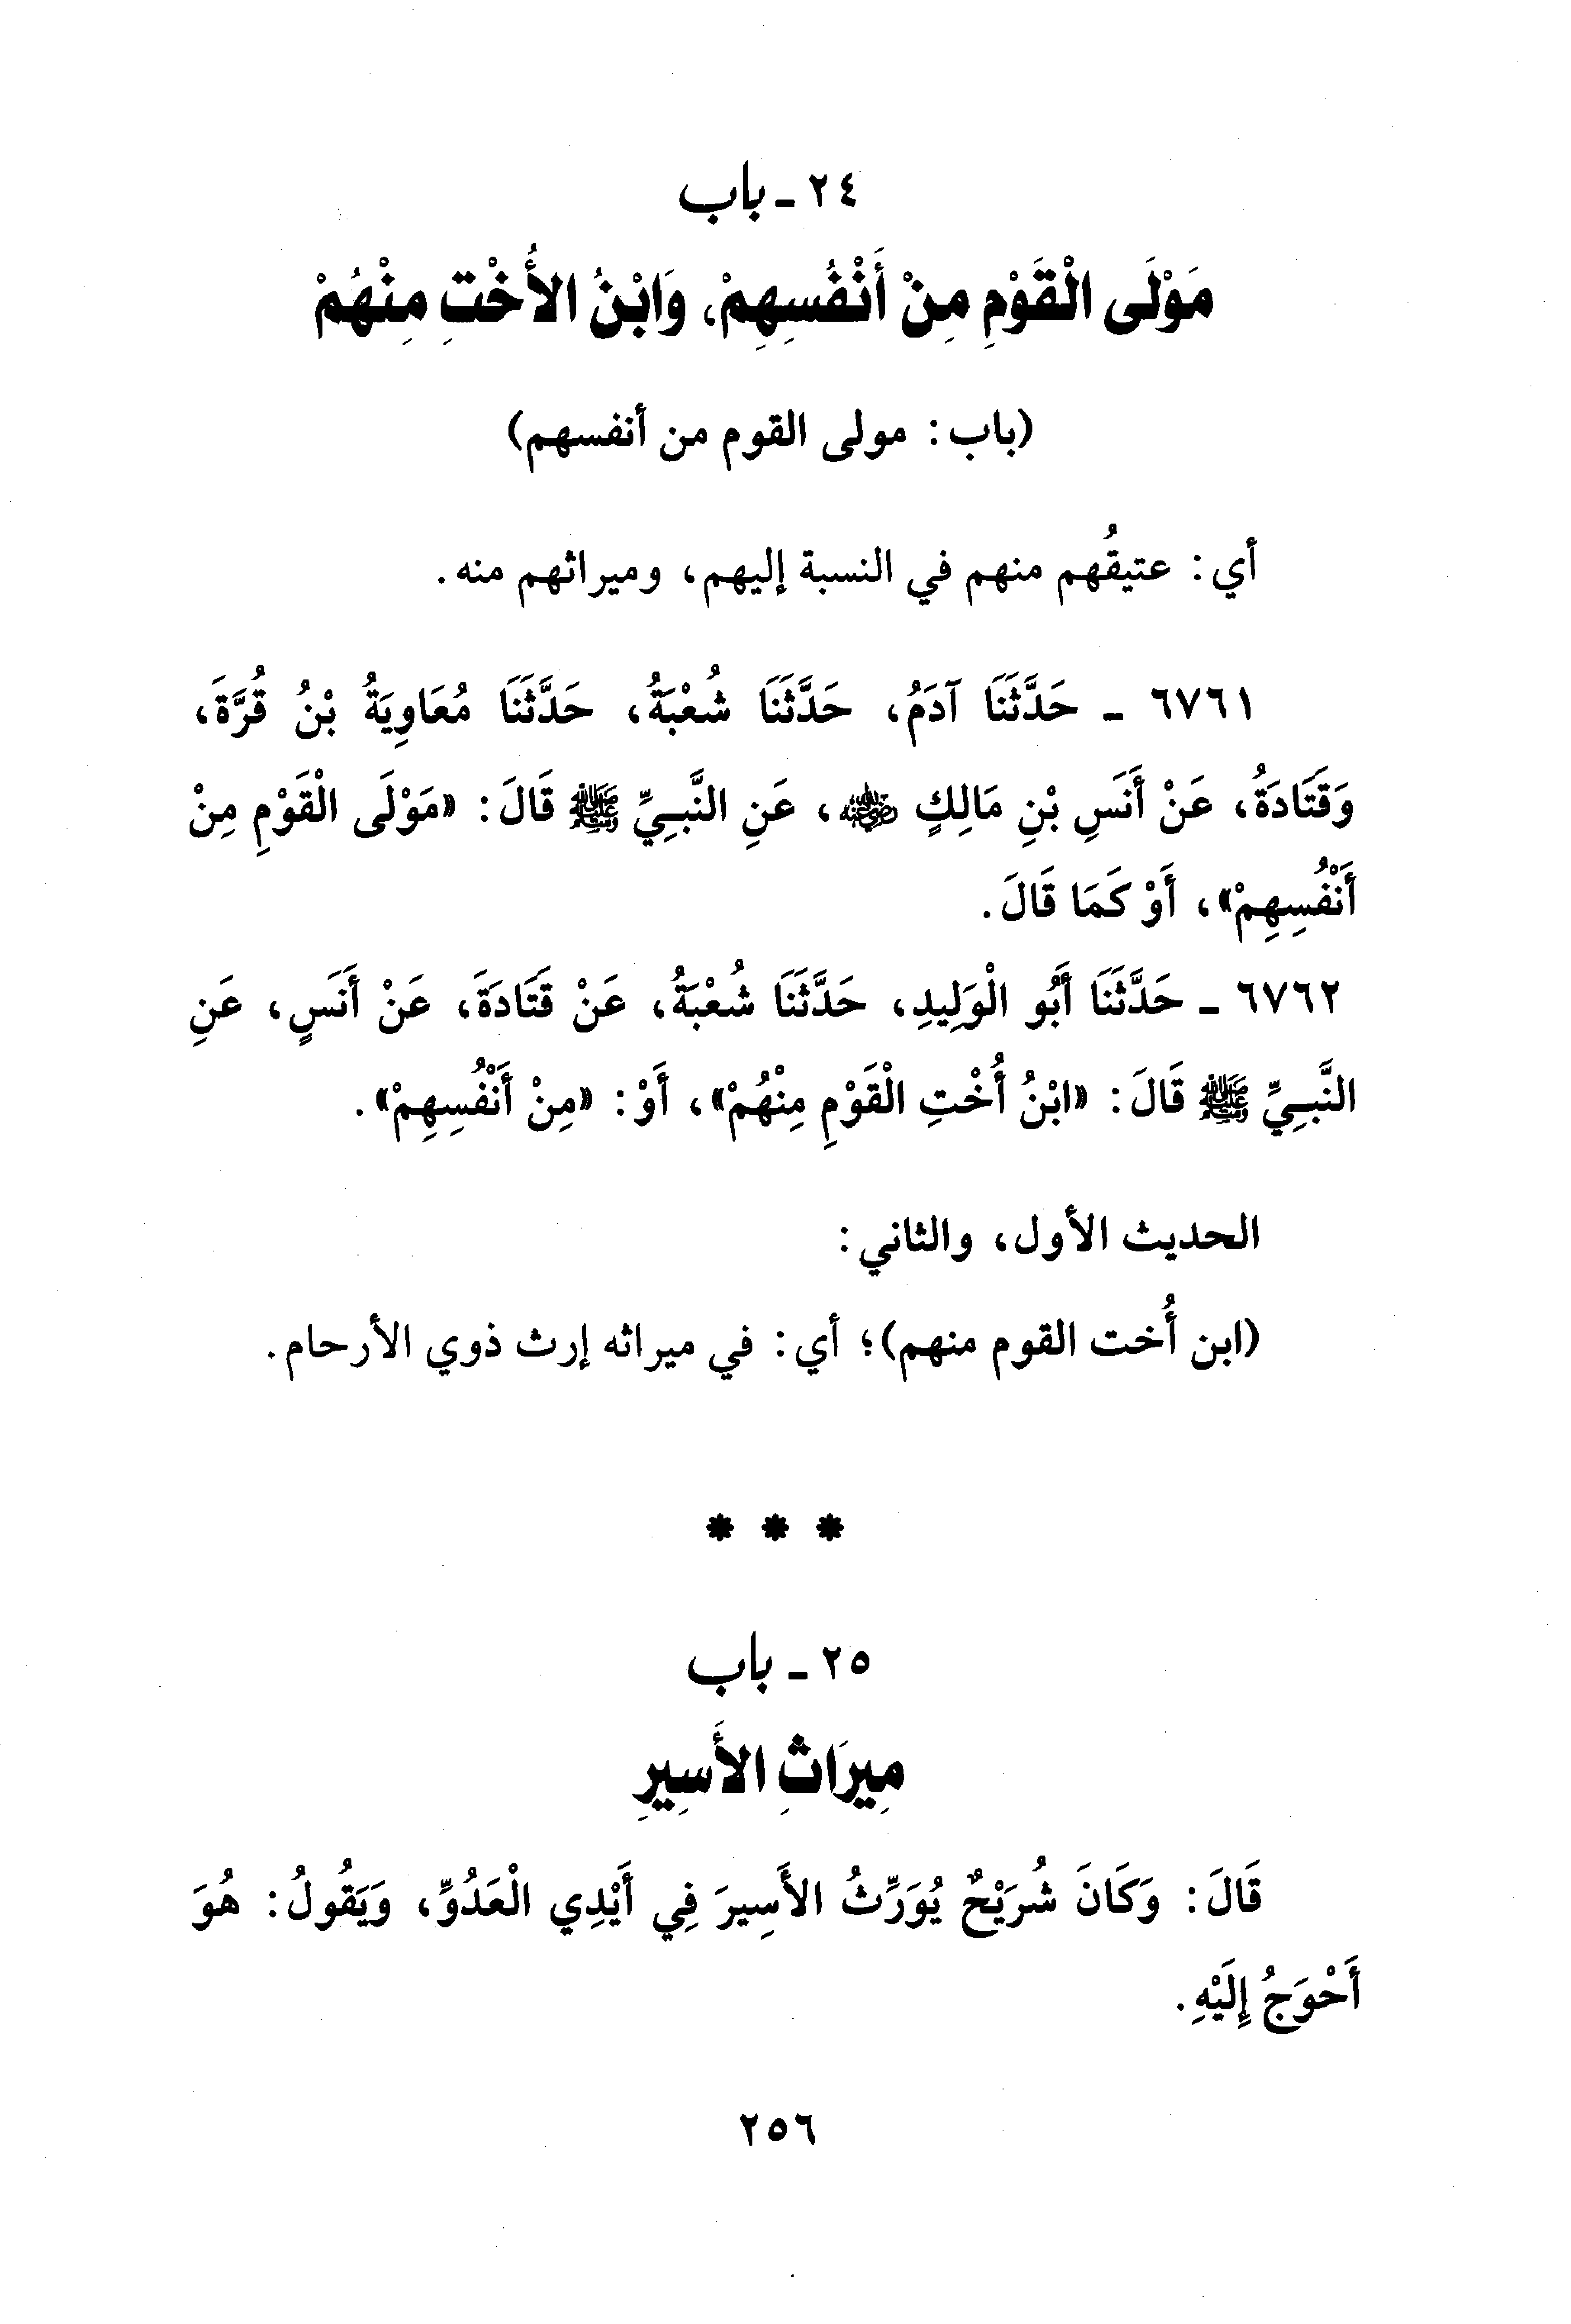 ٢٤ - باب
مَوْلَى الْقَوْمِ مِنْ أَنْفُسِهِمْ، وَابْنُ الأُخْتِ مِنْهُمْ
(باب: مولى القوم من أنفسهم)
أي: عتيقُهم منهم في النسبة إليهم، وميراثهم منه.
٦٧٦١ - حَدَّثَنَا آدَمُ، حَدَّثَنَا شُعْبَةُ، حَدَّثَنَا مُعَاوِيَةُ بْنُ قُرَّةَ،
وَقَتَادَةُ، عَنْ أَنَسِ بْنِ مَالِكٍ رضي الله عنه، عَنِ النَّبِيِّ ﷺ قَالَ: «مَوْلَى الْقَوْمِ مِنْ
أَنْفُسِهِمْ»، أَوْ كَمَا قَالَ.
٦٧٦٢ - حَدَّثَنَا أَبُو الْوَلِيدِ، حَدَّثَنَا شُعْبَةُ، عَنْ قَتَادَةَ، عَنْ أَنَسٍ، عَنِ
النَّبِيِّ ﷺ قَالَ: «ابْنُ أُخْتِ الْقَوْمِ مِنْهُمْ»، أَوْ: «مِنْ أَنْفُسِهِمْ».
الحديث الأول، والثاني:
(ابن أُخت القوم منهم)؛ أي: في ميراثه إرث ذوي الأرحام.
* * *
٢٥ - باب
مِيرَاثِ الأَسِيرِ
قَالَ: وَكَانَ شُرَيْحٌ يُوَرِّثُ الأَسِيرَ فِي أَيْدِي الْعَدُوِّ، وَيَقُولُ: هُوَ
أَحْوَجُ إِلَيْهِ.
٢٥٦